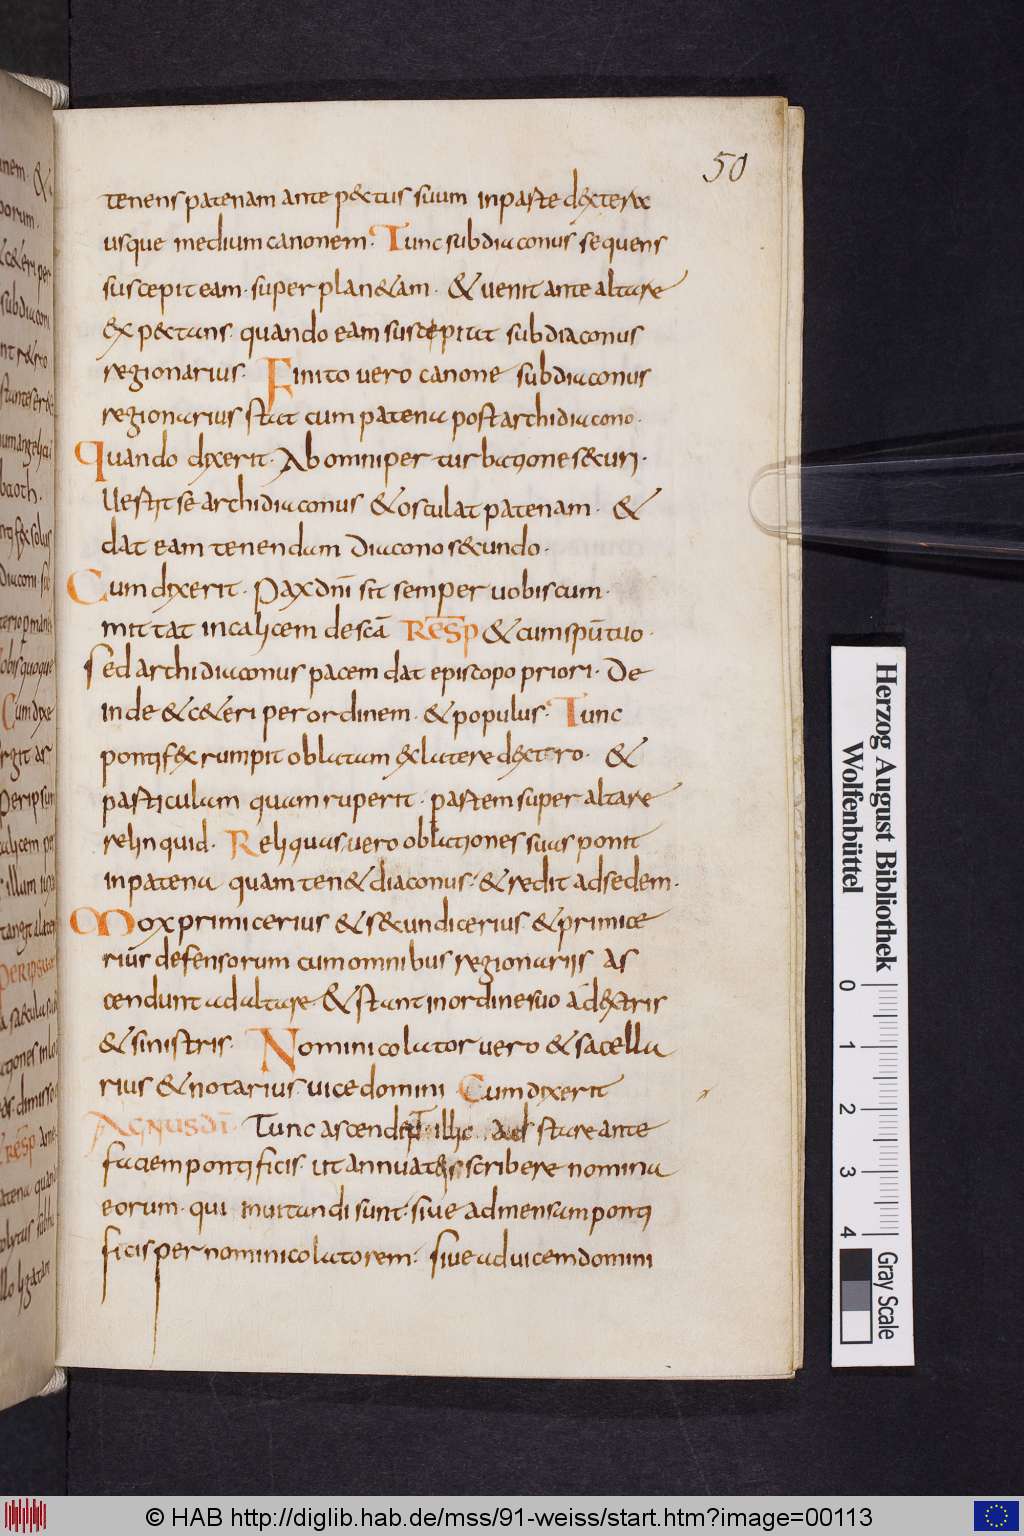 50
tenens patenam ante pectus suum in parte dextera
usque medium canonem. Tunc subdiaconus sequens
suscepit eam super planetam & uenit ante altare
expectans quando eam suscipiat subdiaconus
regionarius. Finito uero canone subdiaconus
regionarius stat cum patena post archidiacono.
Quando dixerit. Ab omni perturbatione securi.
Uertit se archidiaconus & osculat patenam. &
dat eam tenendam diacono secundo.
Cum dixerit. Pax dnī sit semper uobiscum.
mittat in calicem de scā RESP & cum spū tuo.
sed archidiaconus pacem dat episcopo priori. De
inde & ceteri per ordinem. & populus. Tunc
pontifex rumpit oblatam ex latere dextero. &
particulam quam ruperit. partem super altare
relinquid. Reliquas uero oblationes suas ponit
in patena quam tenet diaconus. & redit ad sedem.
Mox primicerius & secundicerius & primice
rius defensorum cum omnibus regionariis as
cendunt ad altare & stant in ordine suo a dextris
& sinistris. Nomincolator uero & sacella
rius & notarius uicedomini Cum dixerit
AGNUS DĪ. Tunc ascendunt stare ante
faciem pontificis. ut annuat scribere nomina
eorum. qui inuitandi sunt. siue ad mensam ponti
ficis per nominicolatorem. siue ad uicemdomini
Herzog August Bibliothek
Wolfenbüttel
0 1 2 3 4
Gray Scale
© HAB http://diglib.hab.de/mss/91-weiss/start.htm?image=00113